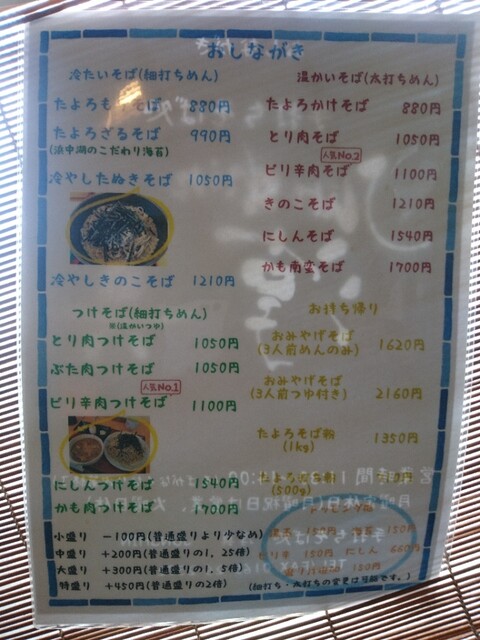 おしながき
冷たいそば(細打ちめん)
たよろも そば 880円
たよろざるそば 990円
(浜中湖のこだわり海苔)
冷やしたぬきそば 1050円
冷やしきのこそば 1210円
つけそば(細打ちめん)
※(温かいつゆ)
とり肉つけそば 1050円
ぶた肉つけそば 1050円
人気No.1
ピリ辛肉つけそば 1100円
にしんつけそば 1540円
かも肉つけそば 1700円
小盛り −100円(普通盛りより少なめ)
中盛り +200円(普通盛りの1.25倍)
大盛り +300円(普通盛りの1.5倍)
特盛り +450円(普通盛りの2倍)
温かいそば(太打ちめん)
たよろかけそば 880円
とり肉そば 1050円
人気No.2
ピリ辛肉そば 1100円
きのこそば 1210円
にしんそば 1540円
かも南蛮そば 1700円
お持ち帰り
おみやげそば
(3人前めんのみ) 1620円
おみやげそば
(3人前つゆ付き) 2160円
たよろそば粉 1350円
(1kg)
(500g)
150円 150円
ピリ辛 150円 にしん 660円
150円
(細打ち・太打ちの変更は可能です。)